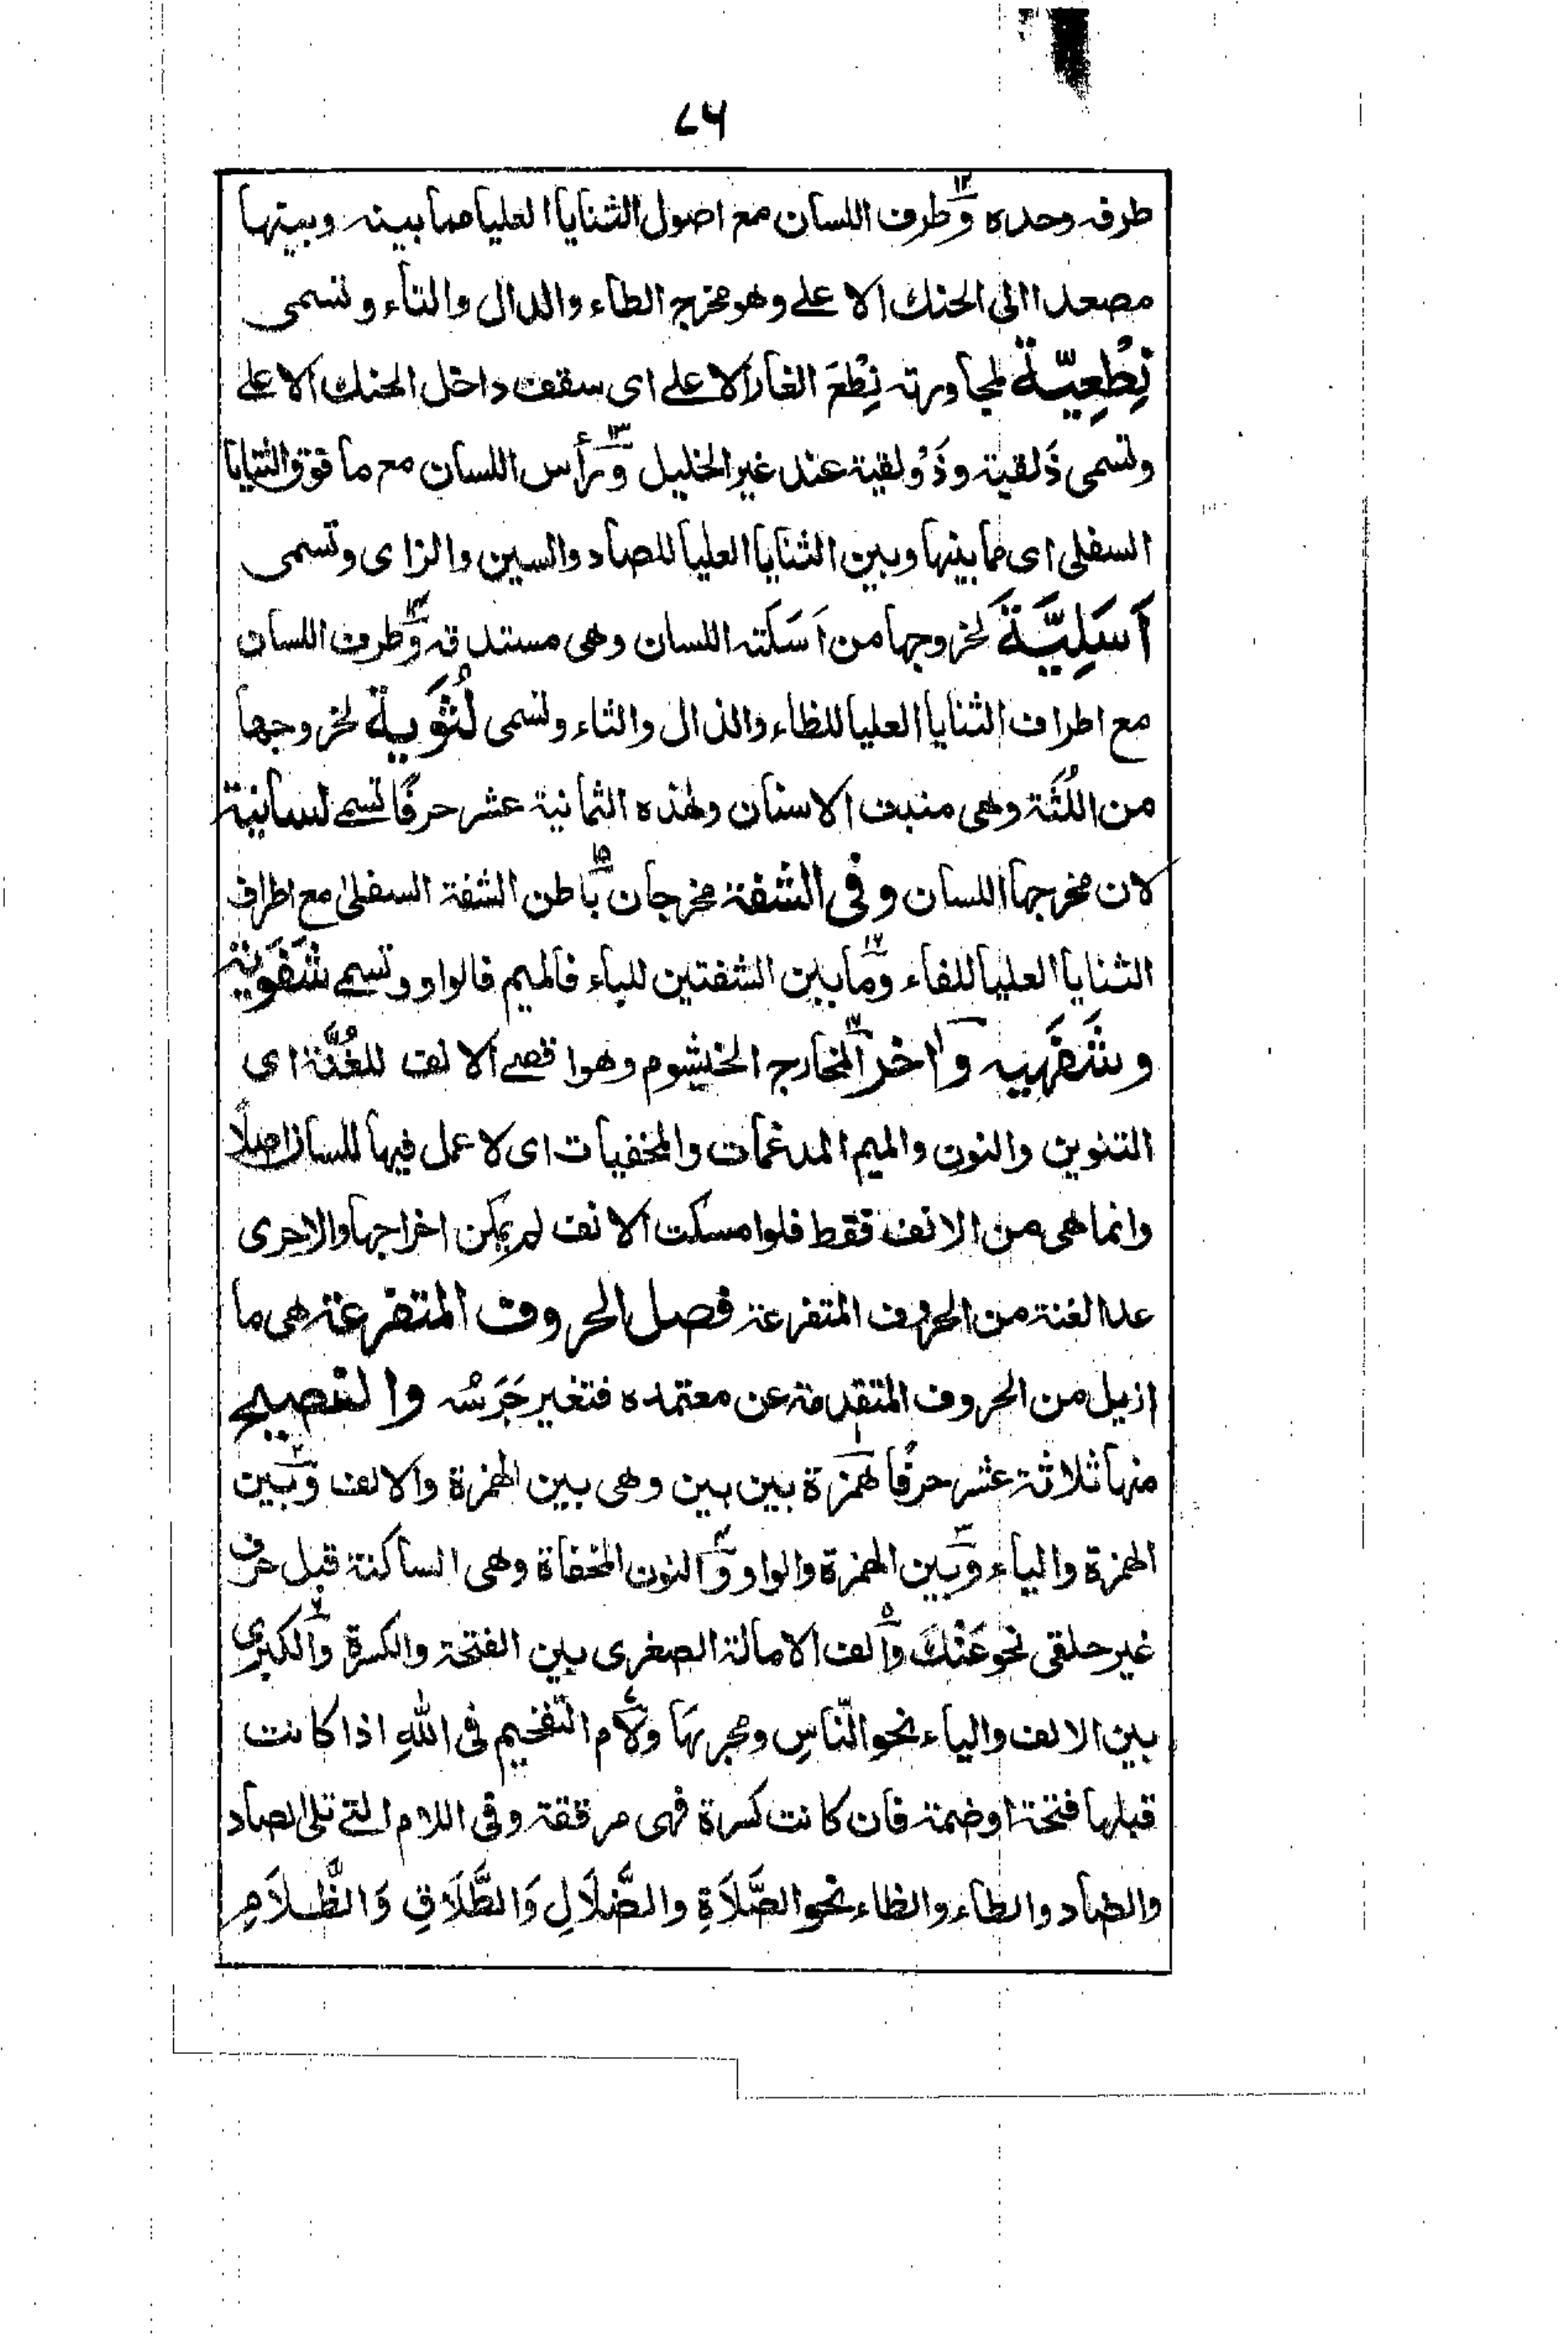 ٨٦
طرفه وحده و۱۲طرف اللسان مع اصول الثنايا العليا مما بينه وبينها
مصعدا الى الحنك الاعلے وهو مخرج الطاء والدال والتاء وتسمى
نِطْعِيّة لمجاورته نِطْعَ الغار الاعلے اى سقف داخل الحنك الاعلے
وتسمى ذَلقية وذَوْلقية عند غير الخليل و۱۳رأس اللسان مع ما فوق الثنايا
السفلى اى مابينها وبين الثنايا العليا للصاد والسين والزاى وتسمى
اَسَلِيَّةً لخروجها من اَسَلَته اللسان وهى مستدقه و۱۴طرف اللسان
مع اطراف الثنايا العليا للظاء والذال والثاء وتسمى لُثَوِية لخروجها
من اللُّثَة وهى منبت الاسنان ولهذه الثمانية عشر حرفًا تسمے لسانية
لان مخرجها اللسان وفى الشفة مخرجان ۱۵باطن الشفة السفلىٰ مع اطراف
الثنايا العليا للفاء و۱۶مابين الشفتين للباء فالميم فالواو وتسمے شَفَوِية
وشَفَهيه و۱۷اخر المخارج الخيشوم وهو اقصے الانف للغُنّة اى
التنوين والنون والميم المدغمات والمخفيات اى لا عمل فيها للسان اصلًا
وانما هى من الانف فقط فلوا مسكت الانف لم يمكن اخراجها والاحرى
عدا الغنة من الحروف المتفرعة فصل الحروف المتفرعة هى ما
ازيل من الحروف المتقدمة عن معتمده فتغير جَرَسُه والفصيح
منها ثلاثة عشر حرفًا ۱همزة بين بين وهى بين الهمزة والالف و۲بين
الهمزة والياء و۳بين الهمزة والواو و۴النون المخفاة وهى الساكنة قبل حرف
غير حلقى نحو عَنْكَ و۵الف الامالة الصغرى بين الفتحة والكسرة و۶الكبرى
بين الالف والياء نحو النّاسِ ومجربهَا و۷لام التّفخيم فى اللّٰهِ اذا كانت
قبلها فتحة اوضمة فان كانت كسرة فهى مرققة وفى اللام التے تلى الصاد
والضاد والطاء والظاء نحو الصَّلَاةِ والضَّلَالِ وَالطَّلَاقِ وَالظَّلَامِ